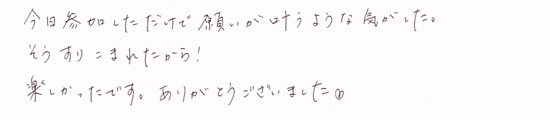 今日参加しただけで願いが叶うような気がした。
そうすりこまれたから!
楽しかったです。ありがとうございました